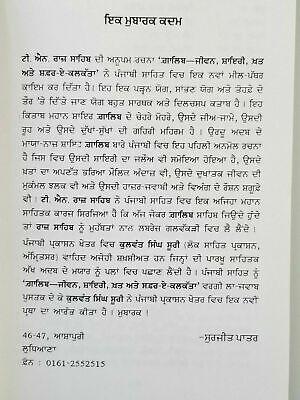 ਇਕ ਮੁਬਾਰਕ ਕਦਮ
ਟੀ. ਐਨ. ਰਾਜ਼ ਸਾਹਿਬ ਦੀ ਅਨੁਪਮ ਰਚਨਾ 'ਗ਼ਾਲਿਬ–ਜੀਵਨ, ਸ਼ਾਇਰੀ, ਖ਼ਤ
ਅਤੇ ਸਫ਼ਰ-ਏ-ਕਲਕੱਤਾ' ਨੇ ਪੰਜਾਬੀ ਸਾਹਿਤ ਵਿਚ ਇਕ ਨਵਾਂ ਮੀਲ-ਪੱਥਰ
ਕਾਇਮ ਕਰ ਦਿੱਤਾ ਹੈ। ਇਹ ਇਕ ਪੜ੍ਹਨ ਯੋਗ, ਸਾਂਭਣ ਯੋਗ ਅਤੇ ਤੋਹਫ਼ੇ ਦੇ
ਤੌਰ 'ਤੇ ਦਿੱਤੇ ਜਾਣ ਯੋਗ ਬਹੁਤ ਸਾਰਥਕ ਅਤੇ ਦਿਲਚਸਪ ਕਤਾਬ ਹੈ। ਇਹ
ਕਿਤਾਬ ਮਹਾਨ ਸ਼ਾਇਰ ਗ਼ਾਲਿਬ ਦੇ ਚੇਹਰੇ ਮੋਹਰੇ, ਉਸਦੇ ਜੀਅ-ਜਾਮੇ, ਉਸਦੀ
ਰੂਹ ਅਤੇ ਉਸਦੇ ਦੁੱਖਾਂ-ਸੁੱਖਾਂ ਦੀ ਗਹਿਰੀ ਮਹਿਰਮ ਹੈ। ਉਰਦੂ ਅਦਬ ਦੇ
ਮਾਯਾ-ਨਾਜ਼ ਸ਼ਾਇਰ ਗ਼ਾਲਿਬ ਬਾਰੇ ਪੰਜਾਬੀ ਵਿਚ ਇਹ ਪਹਿਲੀ ਅਨਮੋਲ ਰਚਨਾ
ਹੈ ਜਿਸ ਵਿਚ ਉਸਦੀ ਸ਼ਾਇਰੀ ਦਾ ਜਲੌਅ ਵੀ ਸਮੋਇਆ ਹੋਇਆ ਹੈ, ਉਸਦੇ
ਖ਼ਤਾਂ ਦਾ ਅਪਣੱਤ ਭਰਿਆ ਮੌਲਿਕ ਅੰਦਾਜ਼ ਵੀ, ਉਸਦੇ ਦੁਖਾਂਤਕ ਜੀਵਨ ਦੀ
ਮੁਕੰਮਲ ਝਲਕ ਵੀ ਅਤੇ ਉਸਦੀ ਹਾਜ਼ਰ-ਜਵਾਬੀ ਅਤੇ ਵਿਅੰਗ ਦੇ ਰੌਸ਼ਨ ਸ਼ਗੂਫ਼ੇ
ਵੀ। ਟੀ. ਐਨ. ਰਾਜ਼ ਸਾਹਿਬ ਨੇ ਇਸ ਰਚਨਾ ਰਾਹੀਂ ਇਕ ਅਜਿਹਾ ਮਹਾਨ
ਸਾਹਿਤਕ ਕਾਰਜ ਸਿਰਜਿਆ ਹੈ ਕਿ ਅੱਜ ਜੇਕਰ ਗ਼ਾਲਿਬ ਸਾਹਿਬ ਜਿਉਂਦੇ ਹੁੰਦੇ
ਤਾਂ ਰਾਜ਼ ਸਾਹਿਬ ਨੂੰ ਮੁਹੱਬਤਾਂ ਨਾਲ ਲਬਰੇਜ਼ ਗਲਵੱਕੜੀ ਵਿਚ ਲੈ ਲੈਂਦੇ।
ਪੰਜਾਬੀ ਪ੍ਰਕਾਸ਼ਨ ਖੇਤਰ ਵਿਚ ਕੁਲਵੰਤ ਸਿੰਘ ਸੂਰੀ (ਲੋਕ ਸਾਹਿਤ ਪ੍ਰਕਾਸ਼ਨ,
ਅੰਮ੍ਰਿਤਸਰ) ਵਾਹਿਦ ਅਜੇਹੀ ਸ਼ਖ਼ਸੀਅਤ ਹਨ ਜਿਨ੍ਹਾਂ ਦੀ ਪਾਰਖੂ ਸਾਹਿਤਕ
ਅੱਖ ਅਦਬ ਦੇ ਮਯਾਰ ਨੂੰ ਪਲਾਂ ਵਿਚ ਪਛਾਣ ਲੈਂਦੀ ਹੈ। ਪੰਜਾਬੀ ਸਾਹਿਤ ਨੂੰ
'ਗ਼ਾਲਿਬ–ਜੀਵਨ, ਸ਼ਾਇਰੀ, ਖ਼ਤ ਅਤੇ ਸਫ਼ਰ-ਏ-ਕਲਕੱਤਾ' ਵਰਗੀ ਲਾ-ਜਵਾਬ
ਪੁਸਤਕ ਦੇ ਕੇ ਕੁਲਵੰਤ ਸਿੰਘ ਸੂਰੀ ਨੇ ਪੰਜਾਬੀ ਪ੍ਰਕਾਸ਼ਨ ਖੇਤਰ ਵਿਚ ਇਕ ਨਵੀਂ
ਪ੍ਰਥਾ ਦਾ ਆਰੰਭ ਕੀਤਾ ਹੈ। ਮੁਬਾਰਕ !
46-47, ਆਸ਼ਾਪੁਰੀ –ਸੁਰਜੀਤ ਪਾਤਰ
ਲੁਧਿਆਣਾ
ਫ਼ੋਨ : 0161-2552515